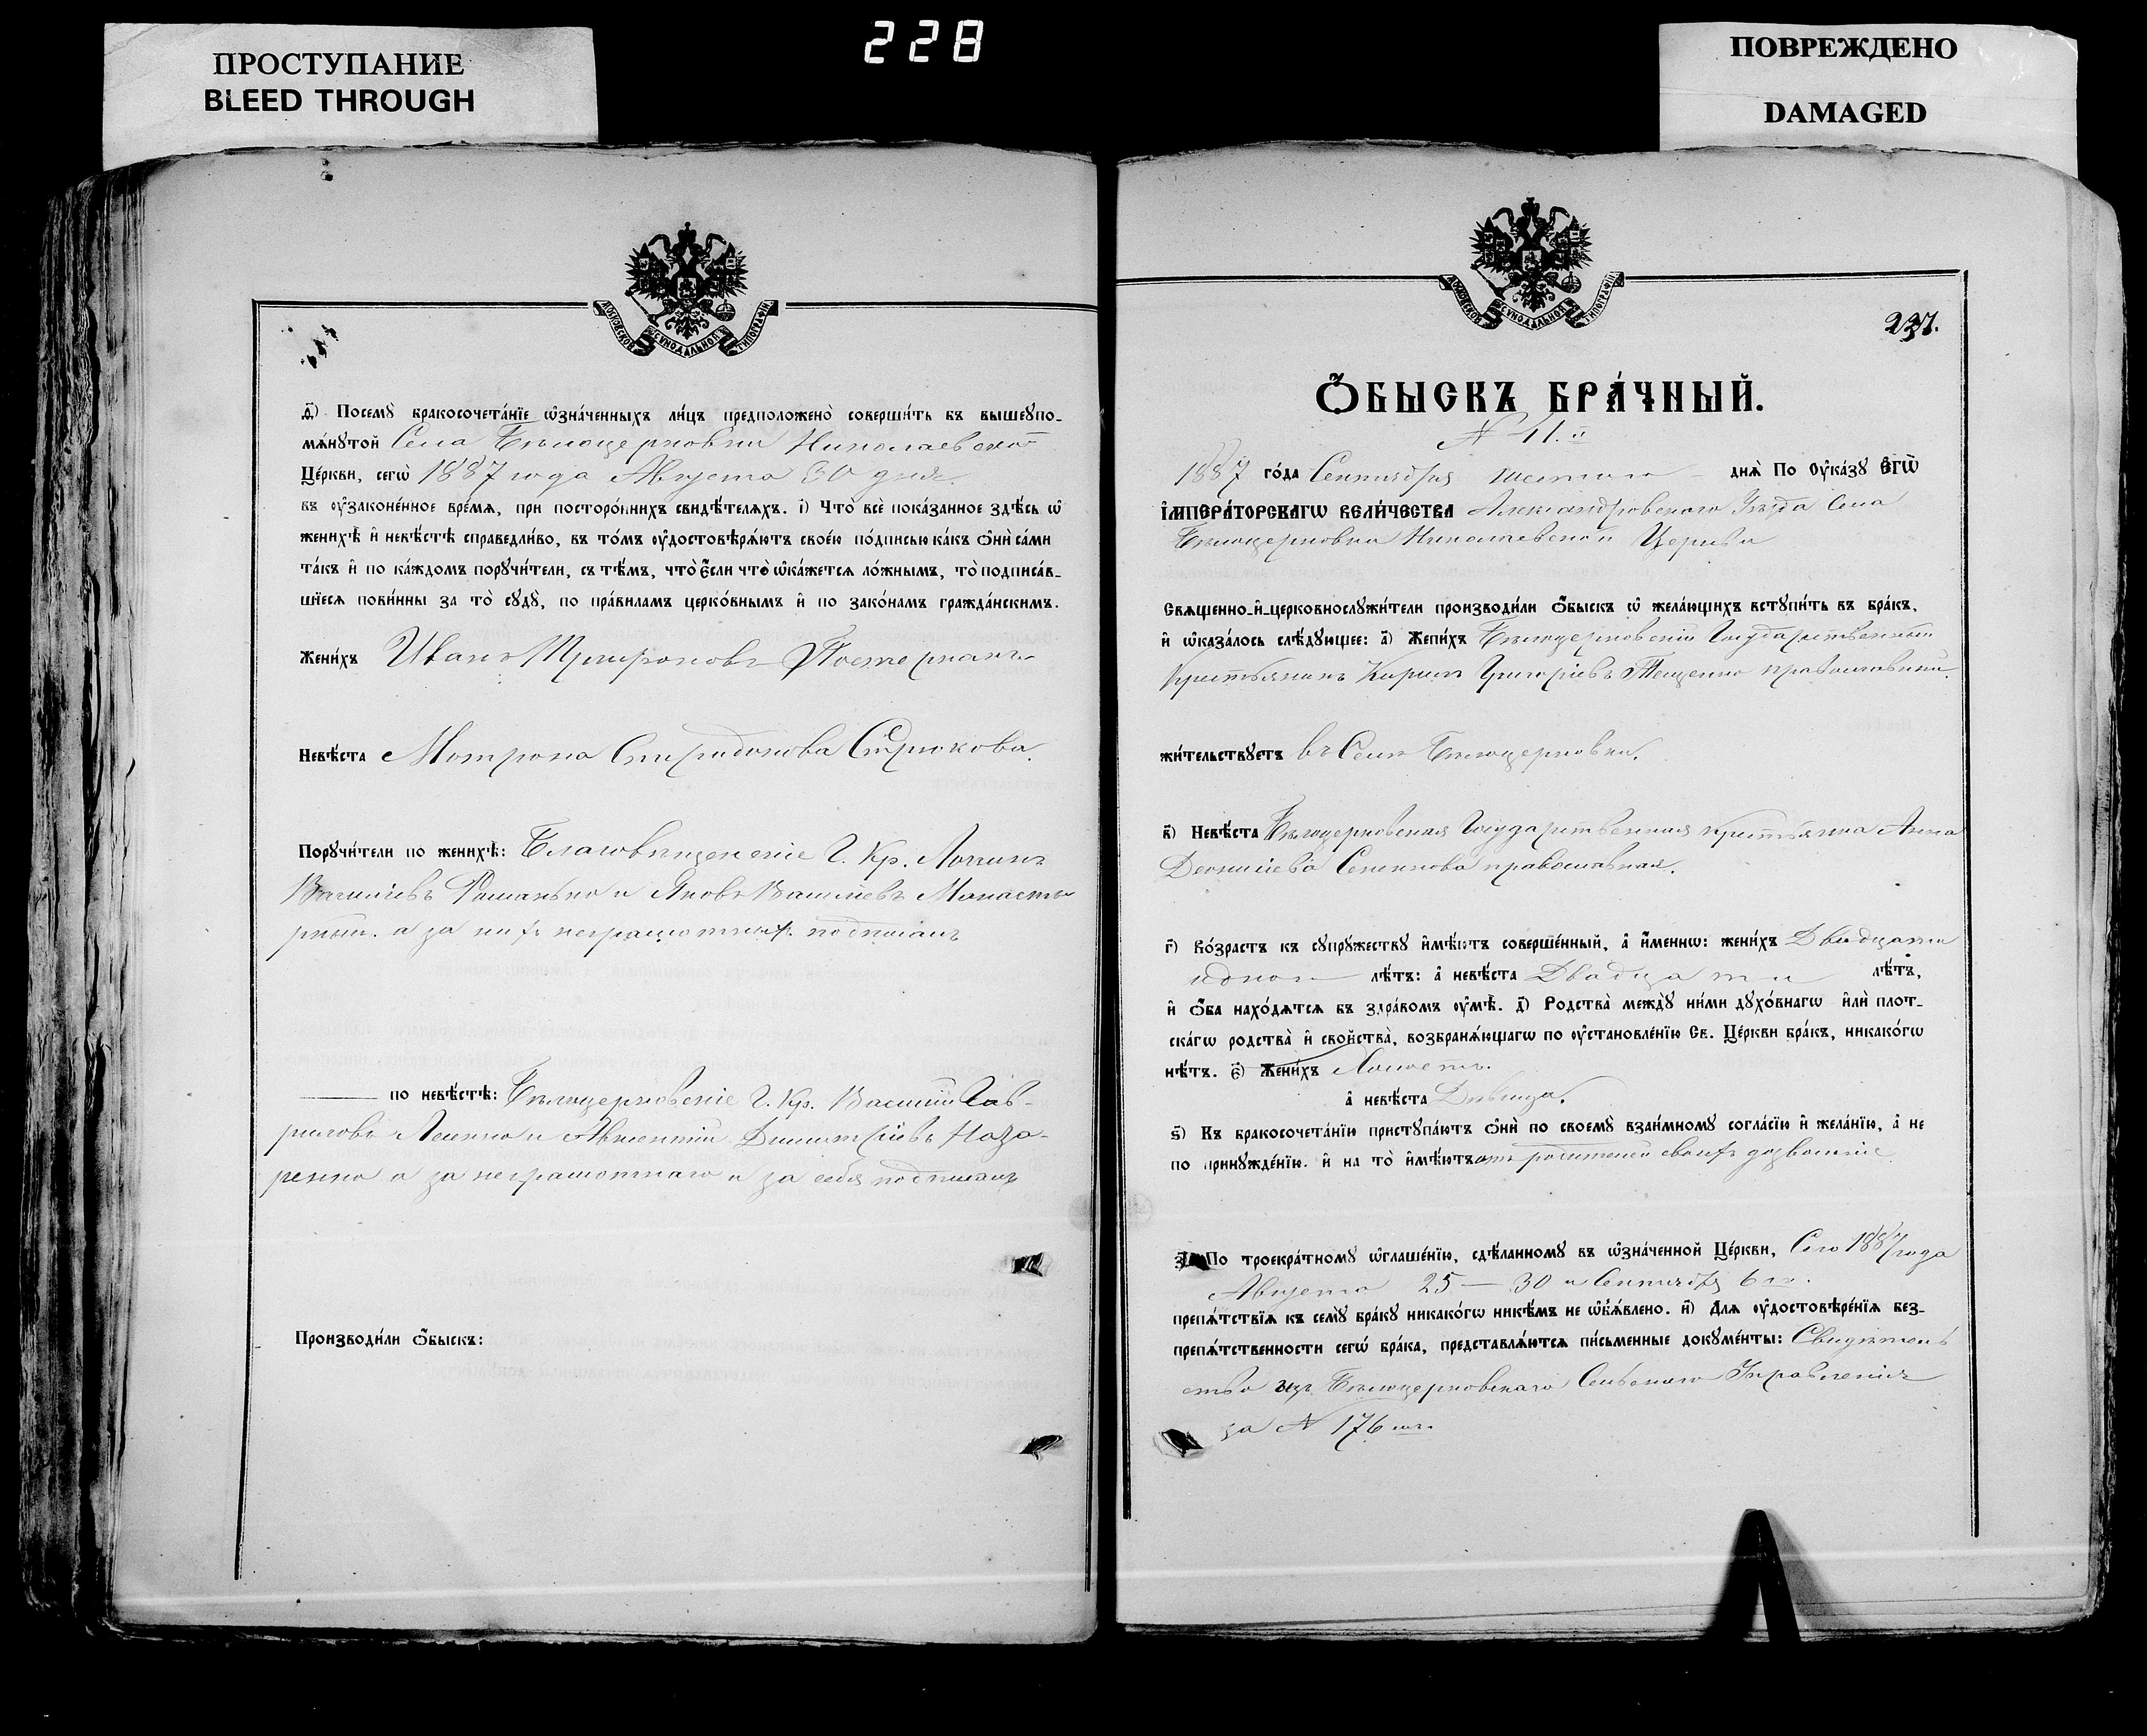 ПРОСТУПАНИЕ
BLEED THROUGH
228
ПОВРЕЖДЕНО
DAMAGED
МОСКОВСКОЙ СѴНОДАЛЬНОЙ ТИПОГРАФІИ
д҃) Посемꙋ̀ бракосочета́нїе ѡ҆зна́ченныхъ ли́цъ предположено̀ соверши́ть въ вышеꙋпо-
мѧ́нꙋтой Села Бѣлоцерковки Николаевской
Це́ркви, сегѡ̀ 1887 года Августа 30 дня.
въ ᲂу҆зако́ненное вре́мѧ, при посторо́ннихъ свидѣ́телѧхъ. і҃) Что̀ всѐ пока́занное здѣ́сь ѡ҆
женихѣ̀ и҆ невѣ́стѣ справедли́во, въ то́мъ ᲂу҆достовѣрѧ́ютъ свое́ю по́дписью ка́къ ѻ҆нѝ са́ми
та́къ и҆ по ка́ждомъ порꙋчи́тели, съ тѣ́мъ, что̀ є҆́сли что̀ ѡ҆ка́жетсѧ ло́жнымъ, то̀ подписа́в-
шїесѧ пови́нны за то̀ сꙋдꙋ̀, по пра́виламъ церко́внымъ и҆ по зако́намъ гражда́нскимъ.
Жени́хъ Иванъ
Невѣ́ста Мотрона Спиридонова Стрюкова.
Порꙋчи́тели по женихѣ̀: Благовѣщенскіе Г. Кр. Логинъ
Василіевъ Романько и Яковъ Василіевъ Монасты-
рный. а за нихъ неграмотных подписалъ
по невѣ́стѣ: Бѣлоцерковскіе Г. Кр. Василій Гав-
риловъ Лешко и Авксентій Димитріевъ Наза-
ренко а за неграмотнаго и за себя подписалъ
Производи́ли ѻ҆́быскъ:
МОСКОВСКОЙ СѴНОДАЛЬНОЙ ТИПОГРАФІИ
237.
Ѻ҆́БЫСКЪ БРА́ЧНЫЙ.
N 41.й
1887 го́да Сентября шестаго днѧ̀ По Ꙋ҆ка́зꙋ Є҆гѡ̀
І҆МПЕРА́ТОРСКАГѠ ВЕЛИ́ЧЕСТВА Александровскаго Уѣзда Села
Бѣлоцерковки Николаевской Церкви
Свѧще́нно-и҆-церковнослꙋжи́тели производи́ли ѻ҆́быскъ ѡ҆ жела́ющихъ встꙋпи́ть въ бра́къ,
и҆ ѡ҆каза́лось слѣ́дꙋющее: а҃) Жени́хъ Бѣлоцерковскій Государственный
Крестьянинъ Кирилъ Григоріевъ Тещенко православный.
жи́тельствꙋетъ въ Селѣ Бѣлоцерковки.
в҃) Невѣ́ста Бѣлоцерковская Государственная крестьянка Анна
Деонисіева Сенькова православная.
г҃) Во́зрастъ къ сꙋпрꙋжествꙋ и҆мѣ́ютъ соверше́нный, а҆ и҆́меннѡ: жени́хъ Двадцати
одного лѣ́тъ: а҆ невѣ́ста Двадцати лѣ́тъ,
и҆ ѻ҆́ба нахо́дѧтсѧ въ здра́вомъ ᲂу҆мѣ̀. д҃) Родства̀ междꙋ̀ ни́ми дꙋхо́внагѡ и҆лѝ плот-
ска́гѡ родства̀ и҆ сво́йства, возбранѧ́ющагѡ по ᲂу҆становле́нїю Св. Це́ркви бра́къ, никако́гѡ
нѣ́тъ. є҃) Жени́хъ Холостъ.
а҆ невѣ́ста Дѣвица.
ѕ҃) Къ бракосочета́нїю пристꙋпа́ютъ ѻ҆нѝ по своемꙋ̀ взаи́мномꙋ согла́сїю и҆ жела́нїю, а҆ не
по принꙋжде́нїю. и҆ на то̀ и҆мѣ́ютъ отъ родителей своихъ дозволеніе
з҃) По троекра́тномꙋ ѡ҆глаше́нїю, сдѣ́ланномꙋ въ ѡ҆зна́ченной Це́ркви, Сего 1887 года
Августа 25 — 30 и Сентября 6 го.
препѧ́тствїѧ къ семꙋ̀ бра́кꙋ никако́гѡ никѣ́мъ не ѡ҆б̾ѧ́влено. и҃) Длѧ ᲂу҆достовѣре́нїѧ без-
препѧ́тственности сегѡ̀ бра́ка, представлѧ́ютсѧ пи́сьменные докꙋме́нты: Свидѣтель
ство изъ Бѣлоцерковскаго Сельскаго Управленія
за N 176 мъ.